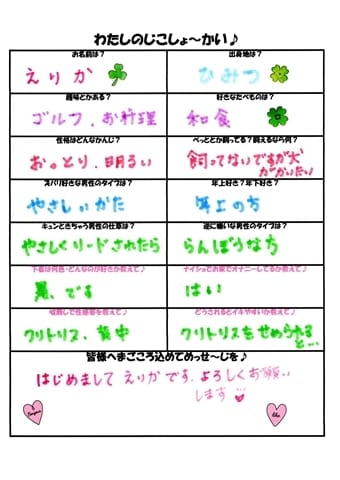 わたしのじこしょ～かい♪
お名前は？
出身地は？
えりか
ひみつ
趣味とかある？
好きなたべものは？
ゴルフ、お料理
和食
性格はどんなかんじ？
ぺっととか飼ってる？飼えるなら何？
おっとり、明るい
飼ってないですが犬
がかいたい
ズバリ好きな男性のタイプは？
年上好き？年下好き？
やさしいかた
年上の方
キュンときちゃう男性の仕草は？
逆に嫌いな男性のタイプは？
やさしくリードされたら
らんぼうな方
下着は何色・どんなのが好きか教えて♪
ナイショでお家でオナニーしてるか教えて♪
黒、です
はい
性感帯を教えて♪
どうされるとイキやすいか教えて♪
クリトリス、背中
クリトリスをせめられる
と…
皆様へまごころ込めてめっせ～じを♪
はじめまして えりか です、よろしくお願い
します